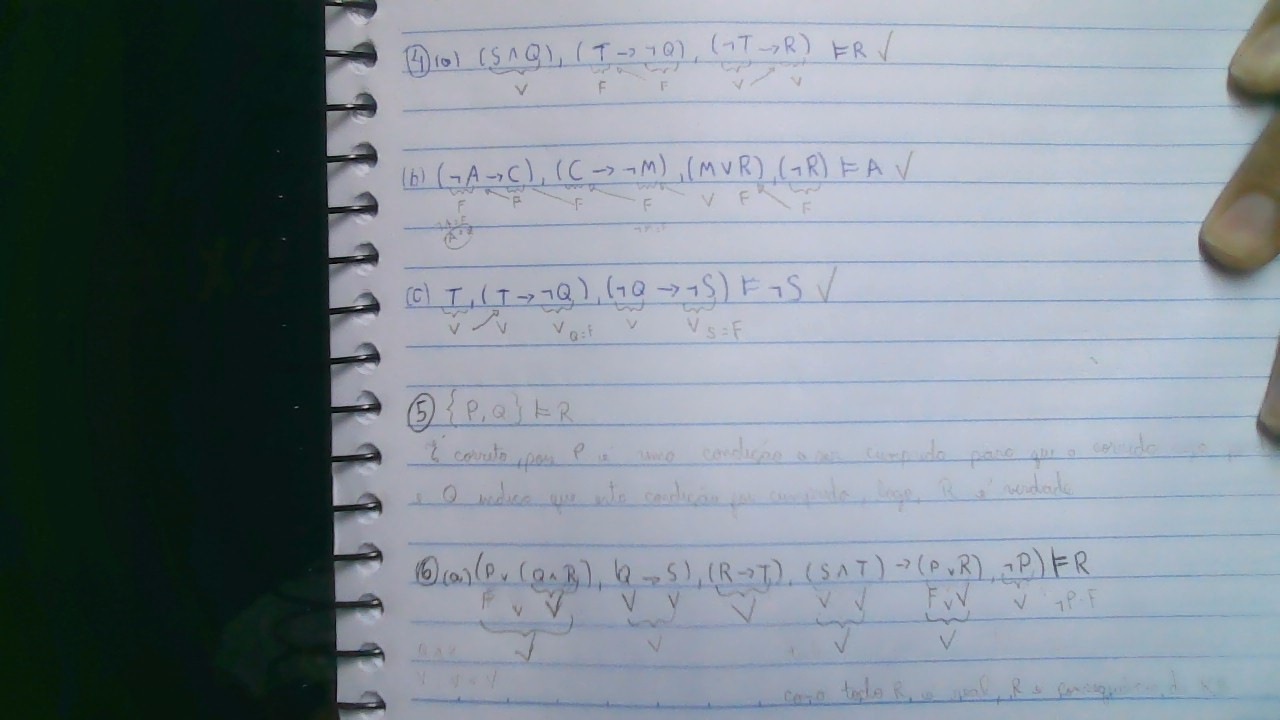 ④(a) (S ∧ Q), (T → ¬Q), (¬T → R) ⊨ R ✓
V F F V V
(b) (¬A → C), (C → ¬M), (M ∨ R), (¬R) ⊨ A ✓
F F F F V F F
(c) T, (T → ¬Q), (¬Q → ¬S) ⊨ ¬S ✓
V V V Q=F V V S=F
⑤ {P, Q} ⊨ R
É correto, pois P é uma condição a ser cumprida para que o
e Q indica que esta condição foi cumprida, logo, R é verdade
⑥(a) (P ∨ (Q ∧ R), (Q → S), (R → T), (S ∧ T) → (P ∨ R), ¬P) ⊨ R
F ∨ V V V V V V F ∨ V V ¬P: F
V V V V
como todo R, é R é